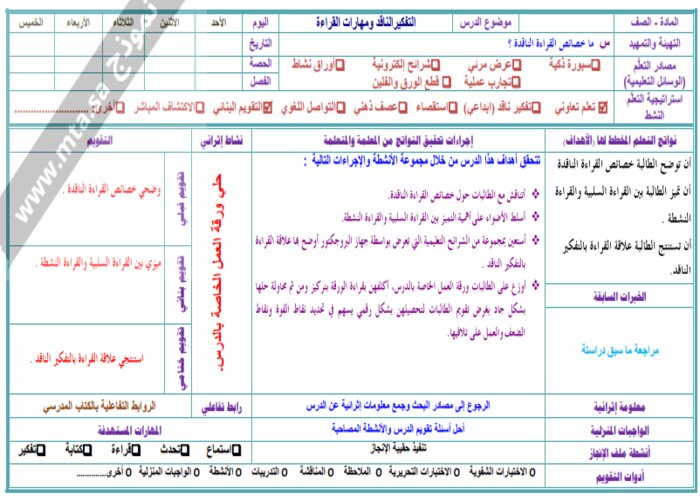 المادة - الصف
موضوع الدرس
التفكير الناقد ومهارات القراءة
اليوم
الأحد
الاثنين
الثلاثاء
الأربعاء
الخميس
التهيئة والتمهيد
س ما خصائص القراءة الناقدة ؟
التاريخ
مصادر التعلم
(الوسائل التعليمية)
سبورة ذكية
عرض مرئي
شرائح إلكترونية
أوراق نشاط
تجارب عملية
قطع الورق والفلين
الحصة
الفصل
استراتيجية التعلم
النشط
تعلم تعاوني
تفكير ناقد (ابداعي)
استقصاء
عصف ذهني
التواصل اللغوي
التقويم البنائي
الاكتشاف المباشر
أخرى:........................
نواتج التعلم المخطط لها (الأهداف)
إجراءات تحقيق النواتج من المعلمة والمتعلمة
نشاط إثرائي
التقويم
أن توضح الطالبة خصائص القراءة الناقدة
أن تميز الطالبة بين القراءة السلبية والقراءة
النشطة .
أن تستنتج الطالبة علاقة القراءة بالتفكير
الناقد.
الخبرات السابقة
مراجعة ما سبق دراسته
تتحقق أهداف هذا الدرس من خلال مجموعة الأنشطة والإجراءات التالية :
أتناقش مع الطالبات حول خصائص القراءة الناقدة.
أسلط الأضواء على أهمية التمييز بين القراءة السلبية والقراءة النشطة.
أستعين بمجموعة من الشرائح التعليمية التي تعرض بواسطة جهاز البروجكتور أوضح بها علاقة القراءة
بالتفكير الناقد .
أوزع على الطالبات ورقة العمل الخاصة بالدرس، أكلفهن بقراءة الورقة بتركيز ومن ثم محاولة حلها
بشكل جاد بغرض تقويم الطالبات لتحصيلهن بشكل رقمي يسهم في تحديد نقاط القوة ونقاط
الضعف والعمل على تلافيها.
حلي ورقة العمل الخاصة بالدرس.
تقويم قبلي
وضحي خصائص القراءة الناقدة .
تقويم بنائي
ميزي بين القراءة السلبية والقراءة النشطة .
تقويم ختامي
استنتجي علاقة القراءة بالتفكير الناقد .
معلومة إثرائية
الرجوع إلى مصادر البحث وجمع معلومات إثرائية عن الدرس
رابط تفاعلي
الروابط التفاعلية بالكتاب المدرسي
الواجبات المنزلية
أحل أسئلة تقويم الدرس والأنشطة المصاحبة
المهارات المستهدفة
أنشطة ملف الإنجاز
تنفيذ حقيبة الإنجاز
استماع
تحدث
قراءة
كتابة
تفكير
أدوات التقويم
الاختبارات الشفوية
الاختبارات التحريرية
الملاحظة
المناقشة
التدريبات
الأنشطة
الواجبات المنزلية
أخرى..............
نموذج www.mta.sa